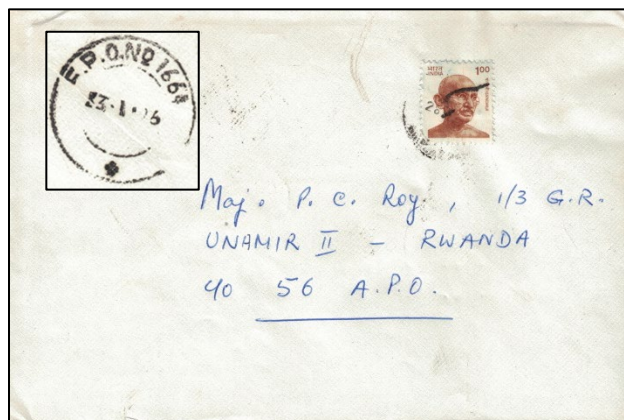 F.P.O.No 1664
23.1.96
1.00
भारत
INDIA
Maj. P. C. Roy, 1/3 G.R.
UNAMIR II - RWANDA
c/o 56 A.P.O.